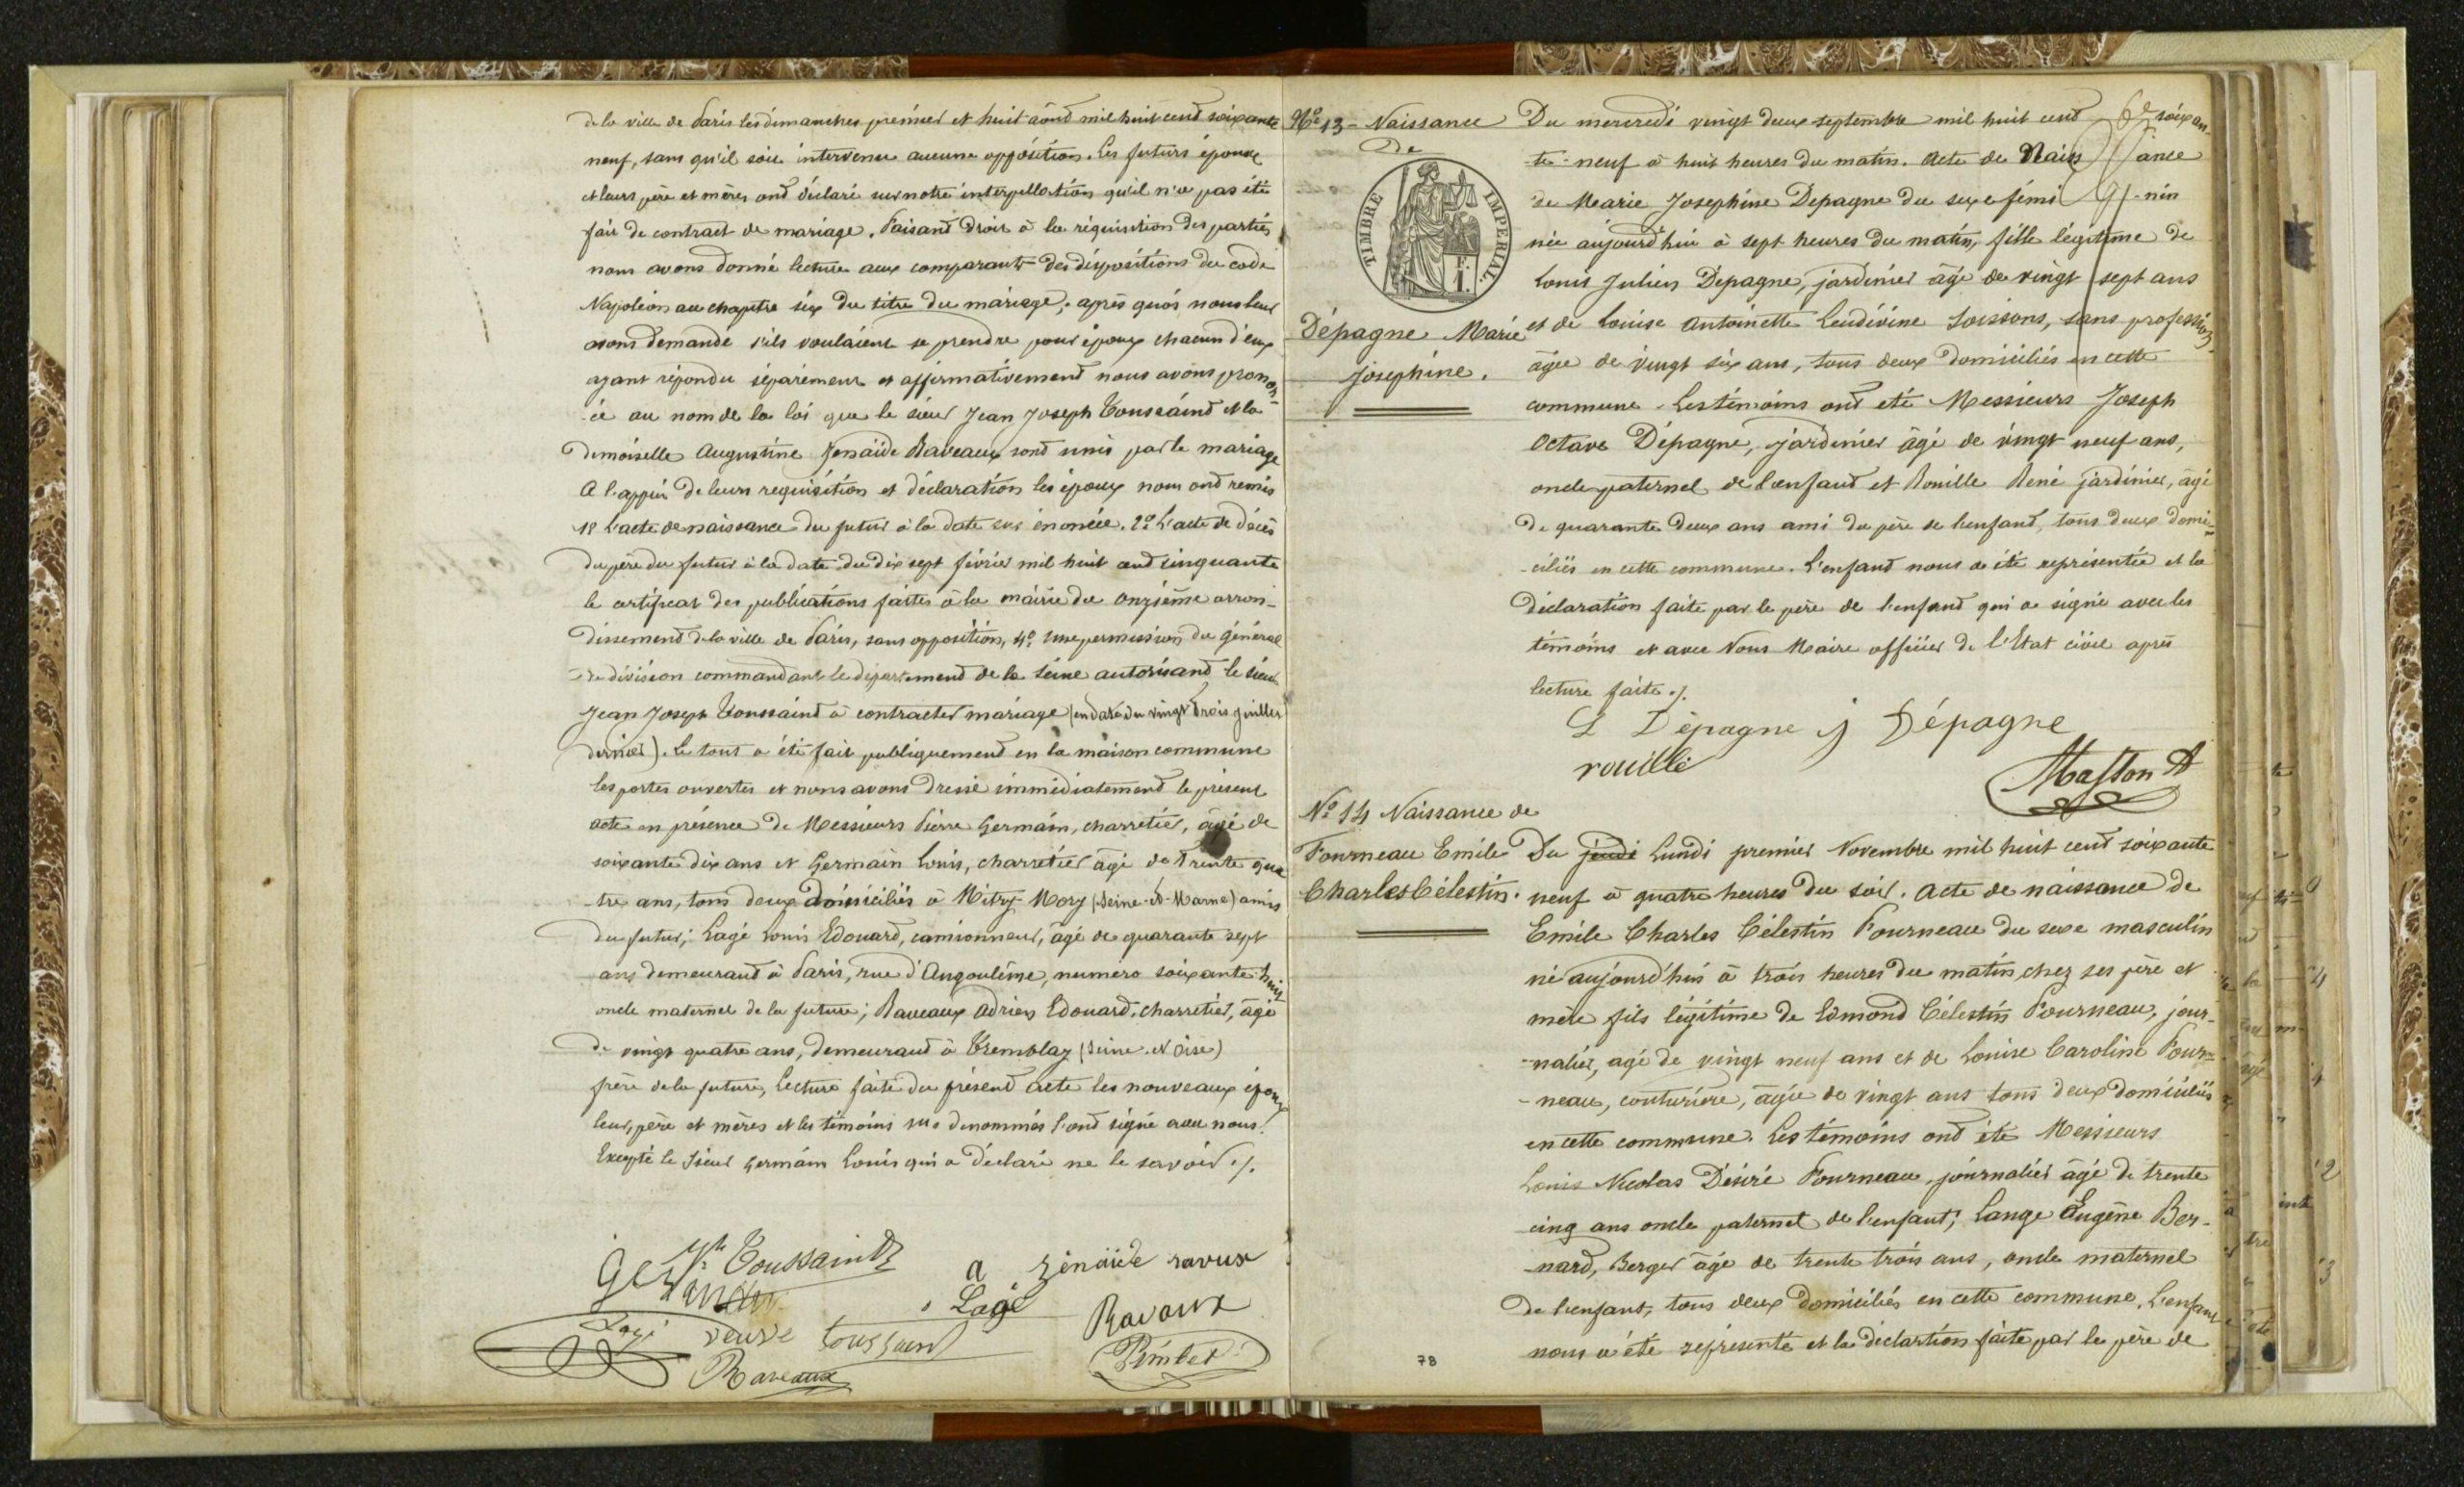 de la ville de Paris les dimanches premier et huit août mil huit cent soixante
neuf, sans qu'il soit intervenu aucune opposition. Les futurs époux
et leurs père et mères ont déclaré sur notre interpellation qu'il n'a pas été
fait de contract de mariage. Faisant droit à la réquisition des parties
nous avons donné lecture aux comparants des dispositions du code
Napoléon au chapitre six du titre du mariage; après quoi nous leur
avons demandé s'ils voulaient se prendre pour époux chacun d'eux
ayant répondu séparément et affirmativement nous avons pronon
-cé au nom de la loi que le sieur Jean Joseph Toussaint et la
demoiselle Augustine Zénaïde Raveaux sont unis par le mariage
A l'appui de leurs requisition et déclaration les époux nous ont remis
1º L'acte de naissance du futur à la date sus énoncée. 2º L'acte de décès
du père du futur à la date du dix sept février mil huit cent cinquante
le certificat des publications faites à la mairie du onzième arron-
dissement de la ville de Paris, sans opposition, 4º une permission du général
de division commandant le département de la Seine autorisant le sieur
Jean Joseph Toussaint à contracter mariage (en date du vingt trois juillet
dernier). Le tout a été fait publiquement en la maison commune
les portes ouvertes et nous avons dressé immédiatement le présent
acte en présence de Messieurs Pierre Germain, charretier, âgé de
soixante dix ans et Germain Louis, charretier âgé de trente qua
-tre ans, tous deux domiciliés à Mitry-Mory (Seine-et-Marne) amis
du futur; Lagé Louis Edouard, camionneur, âgé de quarante sept
ans demeurant à Paris, rue d'Angoulême, numéro soixante huit
oncle maternel de la future; Raveaux Adrien Edouard, charretier, âgé
de vingt quatre ans, demeurant à Tremblay (Seine-et-Oise)
frère de la future, Lecture faite du présent acte les nouveaux époux
leurs père et mères et les témoins sus dénommés l'ont signé avec nous.
Excepté le sieur Germain Louis qui a déclaré ne le savoir ./.
Jh Toussaint
a zénaïde ravux
Lagé
Ravaux
Lagé
veuve toussaint
Raveaux
Pimbet
Nº 13 - Naissance
De
TIMBRE IMPERIAL
Dépagne Marie
Joséphine.
Du mercredi vingt deux septembre mil huit cent soixan-
te-neuf à huit heures du matin. Acte de Naissance
de Marie Joséphine Dépagne du sexe fémi-nin
née aujourd'hui à sept heures du matin, fille légitime de
Louis Julien Dépagne, jardinier âgé de vingt sept ans
et de Louise Antoinette Leudivine Soissons, sans profession
âgée de vingt six ans, tous deux domiciliés en cette
commune. Les témoins ont été Messieurs Joseph
Octave Dépagne, jardinier âgé de vingt neuf ans,
oncle paternel de l'enfant et Rouille René jardinier, âgé
de quarante deux ans ami du père de l'enfant, tous deux domi-
-ciliés en cette commune. L'enfant nous a été représentée et la
déclaration faite par le père de l'enfant qui a signé avec les
témoins et avec Nous Maire officier de l'Etat civil après
lecture faite ./.
L Dépagne J Dépagne
rouille
Masson A
Nº 14 Naissance de
Fourneau Emile
Charles Célestin.
Du jeudi Lundi premier Novembre mil huit cent soixante
neuf à quatre heures du soir. Acte de naissance de
Emile Charles Célestin Fourneau du sexe masculin
né aujourd'hui à trois heures du matin, chez ses père et
mère fils légitime de Edmond Célestin Fourneau, jour-
-nalier, âgé de vingt neuf ans et de Louise Caroline Four-
-neau, couturière, âgée de vingt ans tous deux domiciliés
en cette commune. Les témoins ont été Messieurs
Louis Nicolas Désiré Fourneau, journalier âgé de trente
cinq ans oncle paternel de l'enfant; Lange Eugène Ber-
-nard, Berger âgé de trente trois ans, oncle maternel
de l'enfant, tous deux domiciliés en cette commune. L'enfant
nous a été représenté et la déclartion faite par le père de
78